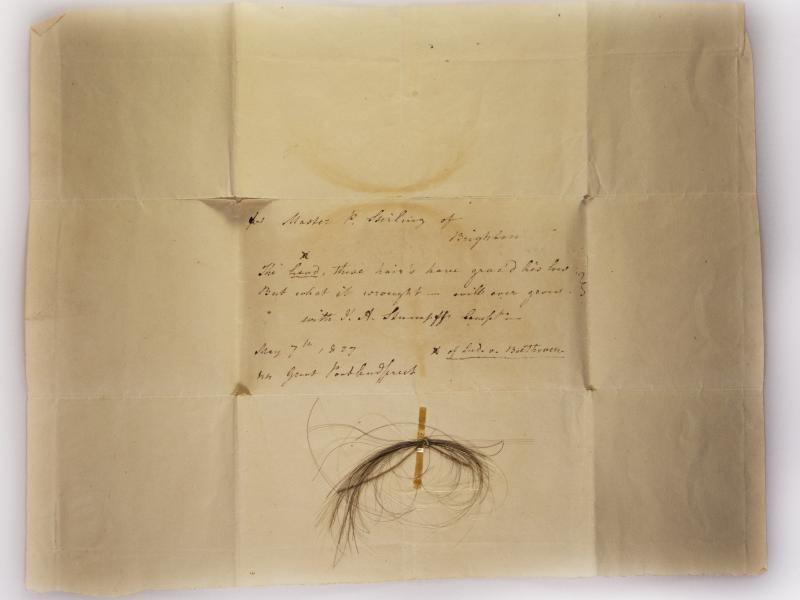 for Master P. Stirling of
Brighton
x
The head, these hair's have grac'd lies low
But what it wrought — will ever grow.
with J. A. Stumpff's Compts
May 7th 1827
Great Portland Street
x of Lud. v. Beethoven.